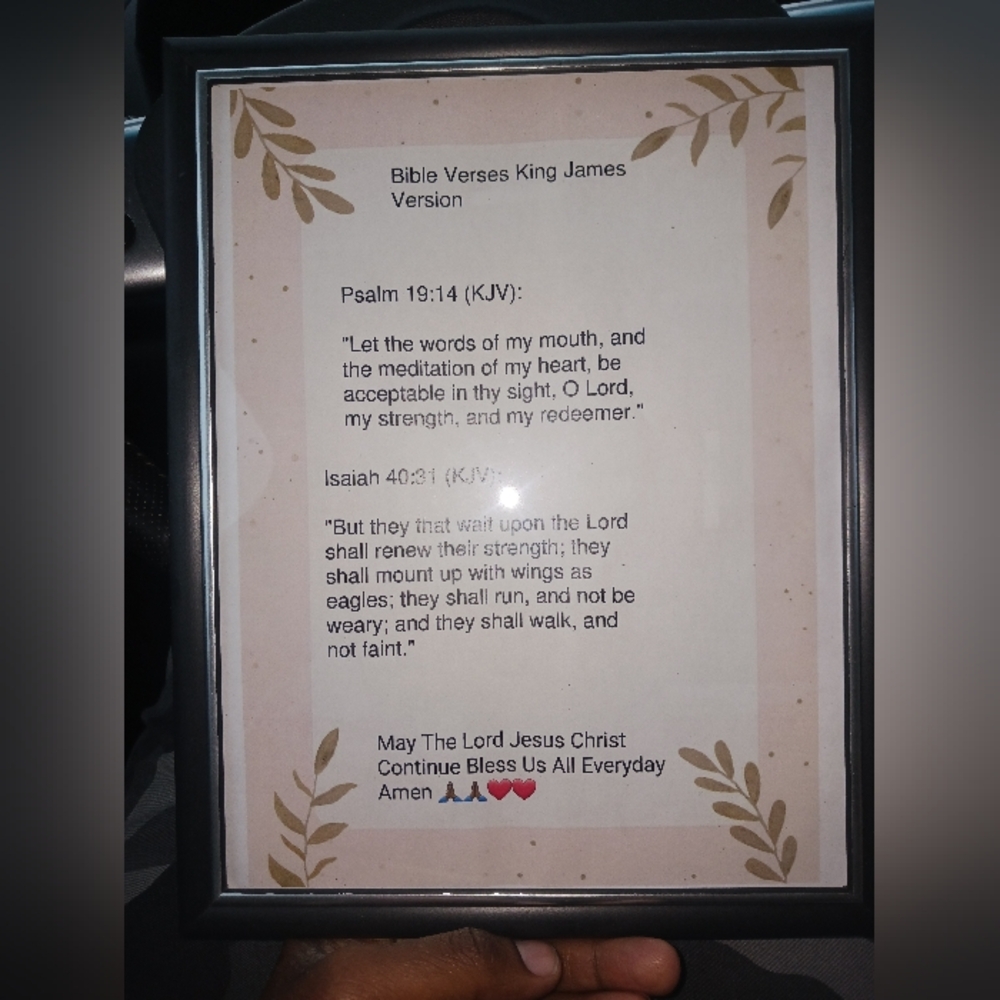 Bible Verses King James
Version
Psalm 19:14 (KJV):
"Let the words of my mouth, and
the meditation of my heart, be
acceptable in thy sight, O Lord,
my strength, and my redeemer."
Isaiah 40:31 (KJV):
"But they that wait upon the Lord
shall renew their strength; they
shall mount up with wings as
eagles; they shall run, and not be
weary; and they shall walk, and
not faint."
May The Lord Jesus Christ
Continue Bless Us All Everyday
Amen 🙏🏾🙏🏾❤️❤️